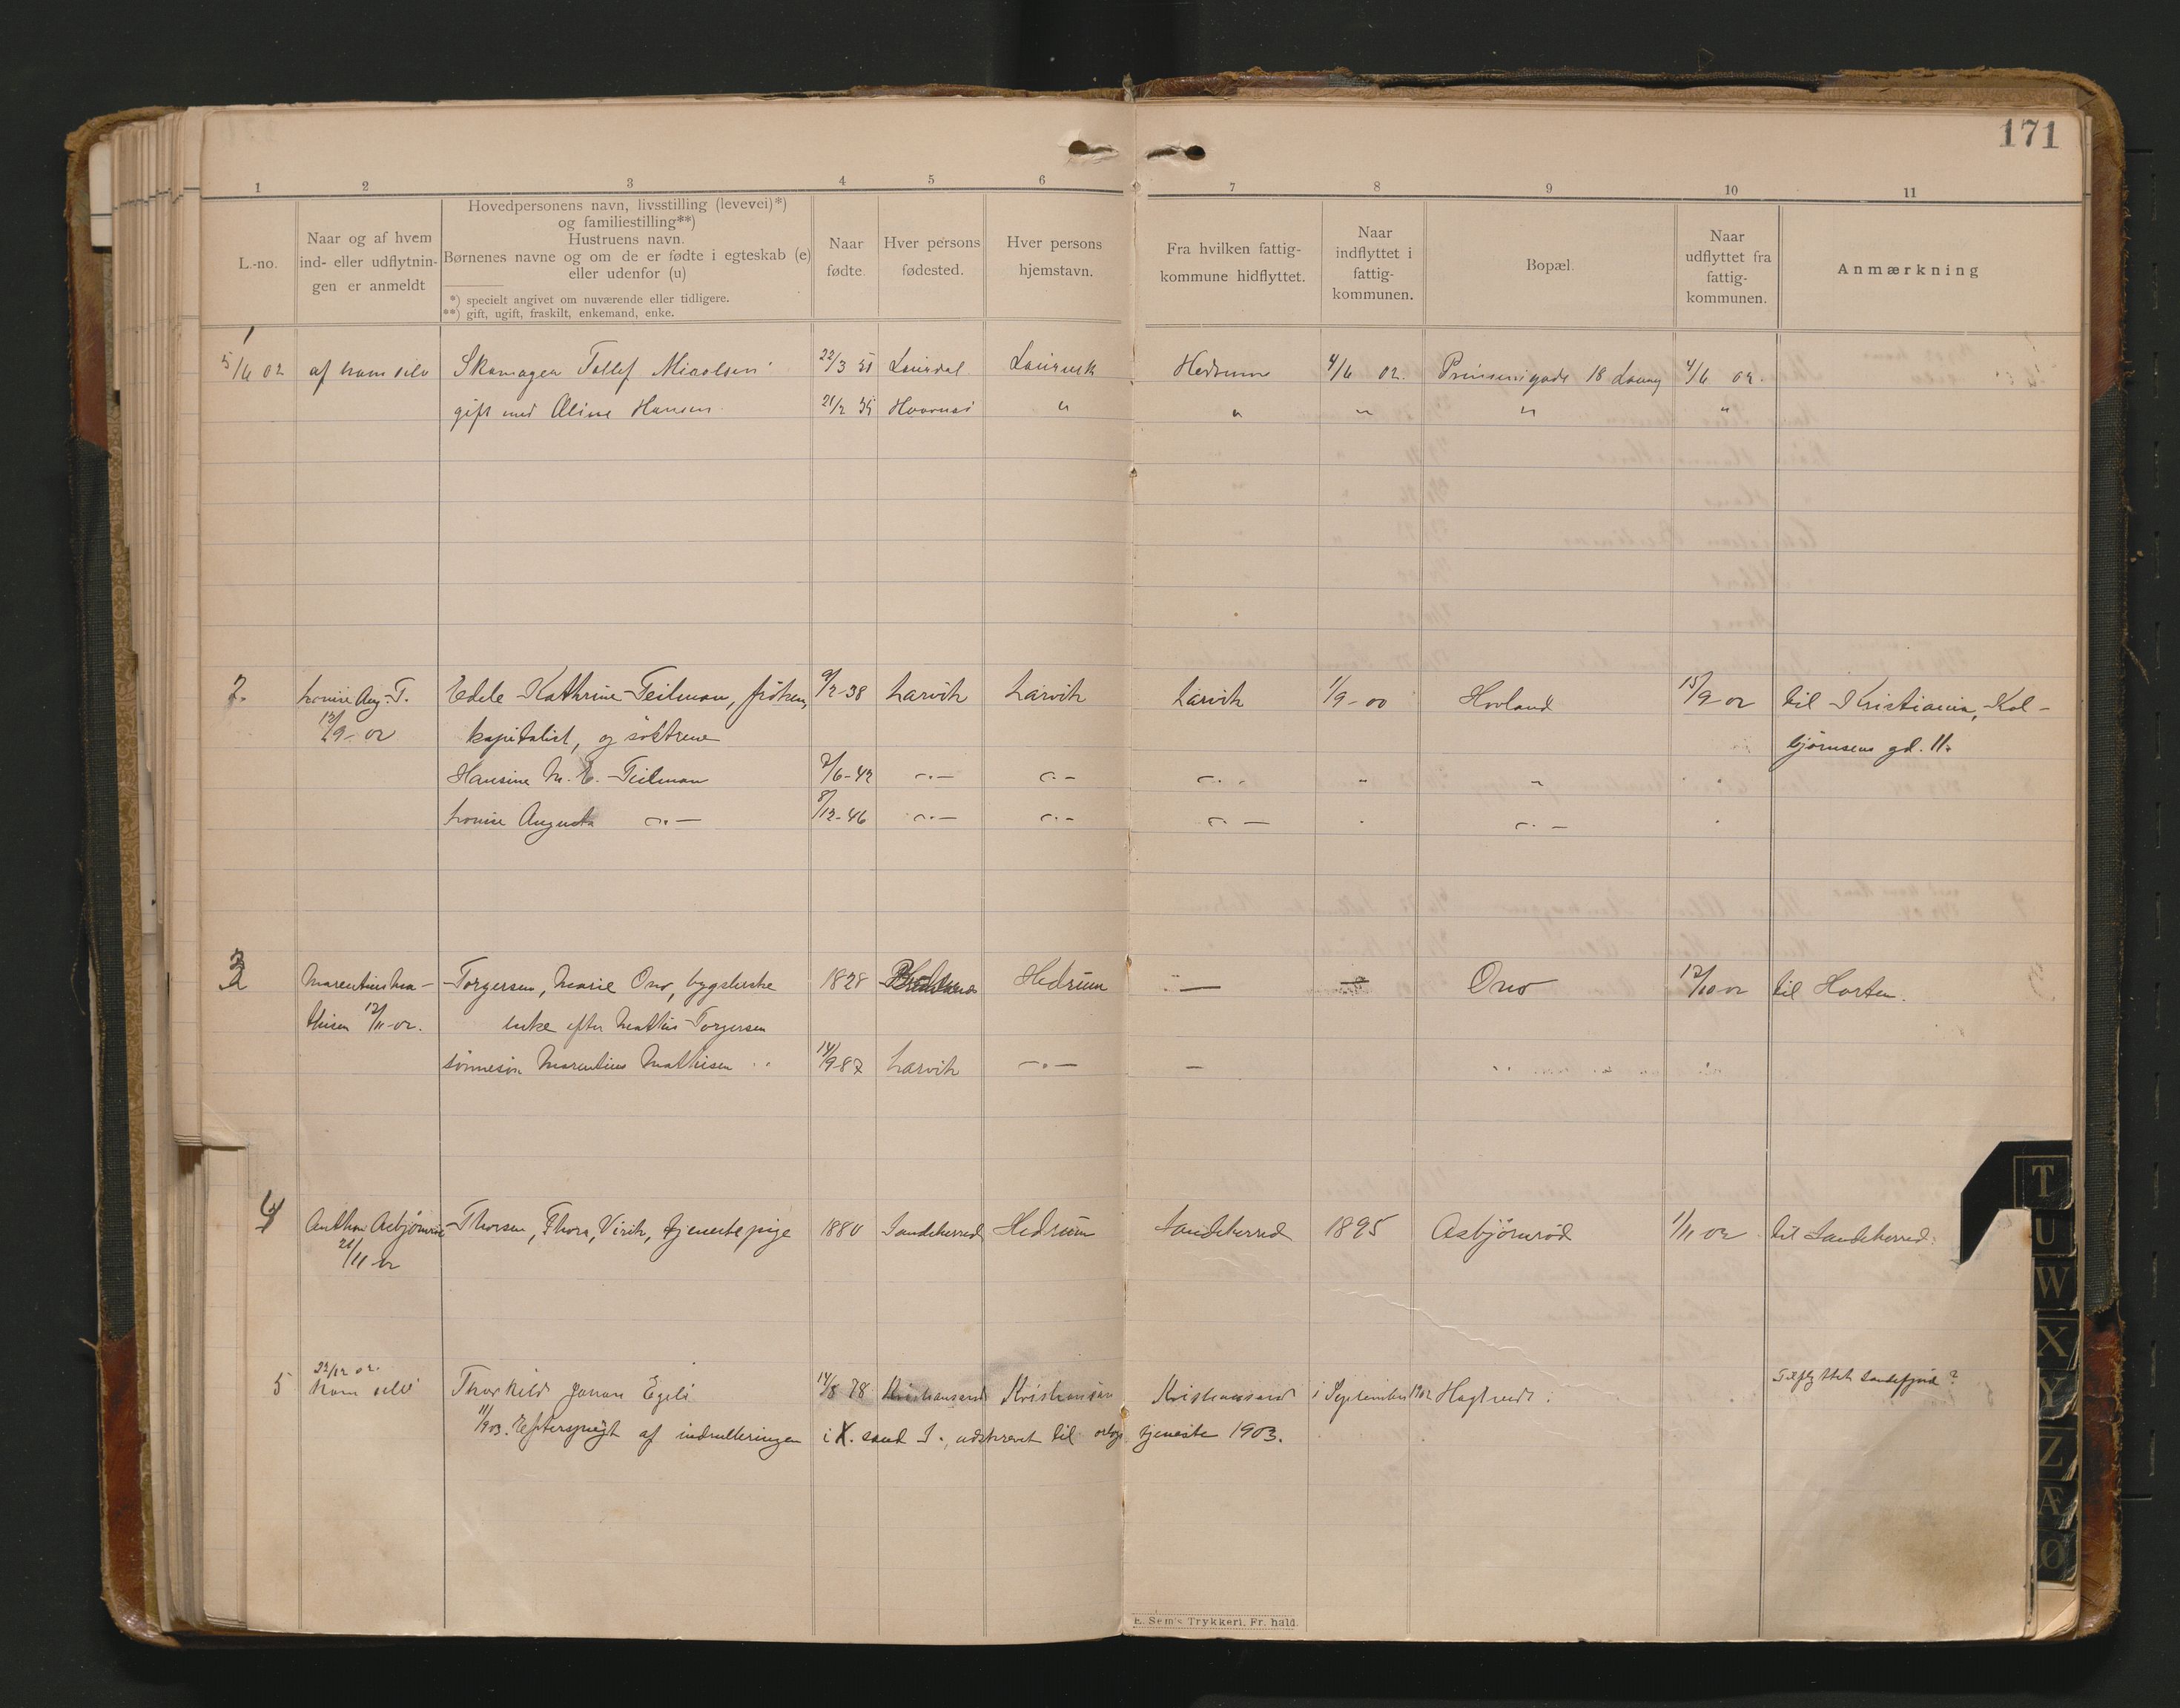 171
1 2 3 4 5 6 7 8 9 10 11
L.-no.
Naar og af hvem
ind- eller udflytnin-
gen er anmeldt
Hovedpersonens navn, livsstilling (levevei)*)
og familiestilling**)
Hustruens navn.
Børnenes navne og om de er fødte i egteskab (e)
eller udenfor (u)
*) specielt angivet om nuværende eller tidligere.
**) gift, ugift, fraskilt, enkemand, enke.
Naar
fødte.
Hver persons
fødested.
Hver persons
hjemstavn.
Fra hvilken fattig-
kommune hidflyttet.
Naar
indflyttet i
fattig-
kommunen.
Bopæl.
Naar
udflyttet fra
fattig-
kommunen.
Anmærkning
1
5/6 02 af ham selv Skomager Tollef 22/3 Hedrum 4/6 02. Prinsensgade 18 4/6 02.
gift med Oline Hansen 21/2 " " " " "
2. Louise Aug. T. Edele Kathrine Teilman, frøken, 9/2-38 Larvik Larvik Larvik 1/9-00 Hovland 15/9 02 til Kristiania, Kol-
12/9-02 kapitalist, og søstrene bjørnsens gd. 11.
Hansine M. E. Teilman 7/6-42 -"- -"- -"- " " "
Louise Augusta -"- 8/12-46 -"- -"- -"- " -"- "
3 Marentius Ma- Torgersen, Marie Ono, bygslerske 1828 Hedrum — Ono 12/10 02 til Horten.
thisen 12/11-02. enke efter Mathis Torgersen
sønnesøn Marentius Mathisen 14/9 87 Larvik -"- —
4 Anthon Asbjørnrød Thorsen, Thora, Virik, tjenestepige 1880 Sandeherred Hedrum Sandeherred 1895 Asbjørnrød 1/11 02 til Sandeherred.
21/11 02
22/12 02.
5 ham selv Thorkild Egeli 14/8 78 Kristiansand Kristiansan Kristiansand i September 1902 Tilflyttet Sandefjord?
11/1903. Efterspurgt af indrulleringen i X.sand S., udskrevet til orlogstjeneste 1903.
E. Sem's Trykkeri, Fr.hald.
T
U
W
X
Y
Z
Æ
Ø